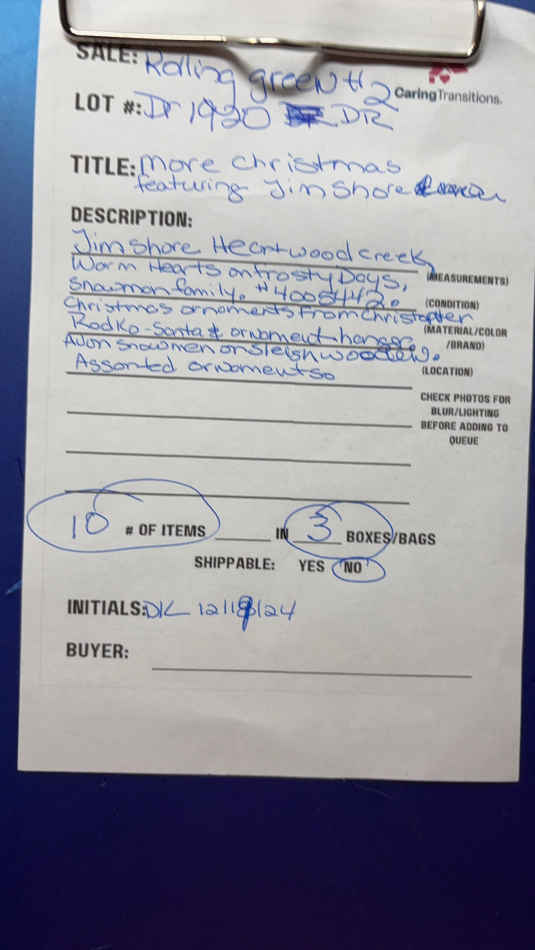 SALE: Rolling green #2
CaringTransitions.
LOT #: Dr 1920 DR
TITLE: More Christmas
featuring Jim Shore
DESCRIPTION:
Jim Shore Heartwood creek
Warm Hearts on frosty Days, (MEASUREMENTS)
snowman family. #4005442. (CONDITION)
Christmas ornaments from Christopher
Radko-Santa & ornament hanger (MATERIAL/COLOR
/BRAND)
Avon snowmen on sleigh wooden.
Assorted ornaments. (LOCATION)
CHECK PHOTOS FOR
BLUR/LIGHTING
BEFORE ADDING TO
QUEUE
10 # OF ITEMS IN 3 BOXES/BAGS
SHIPPABLE: YES NO
INITIALS: DK 12/18/24
BUYER: